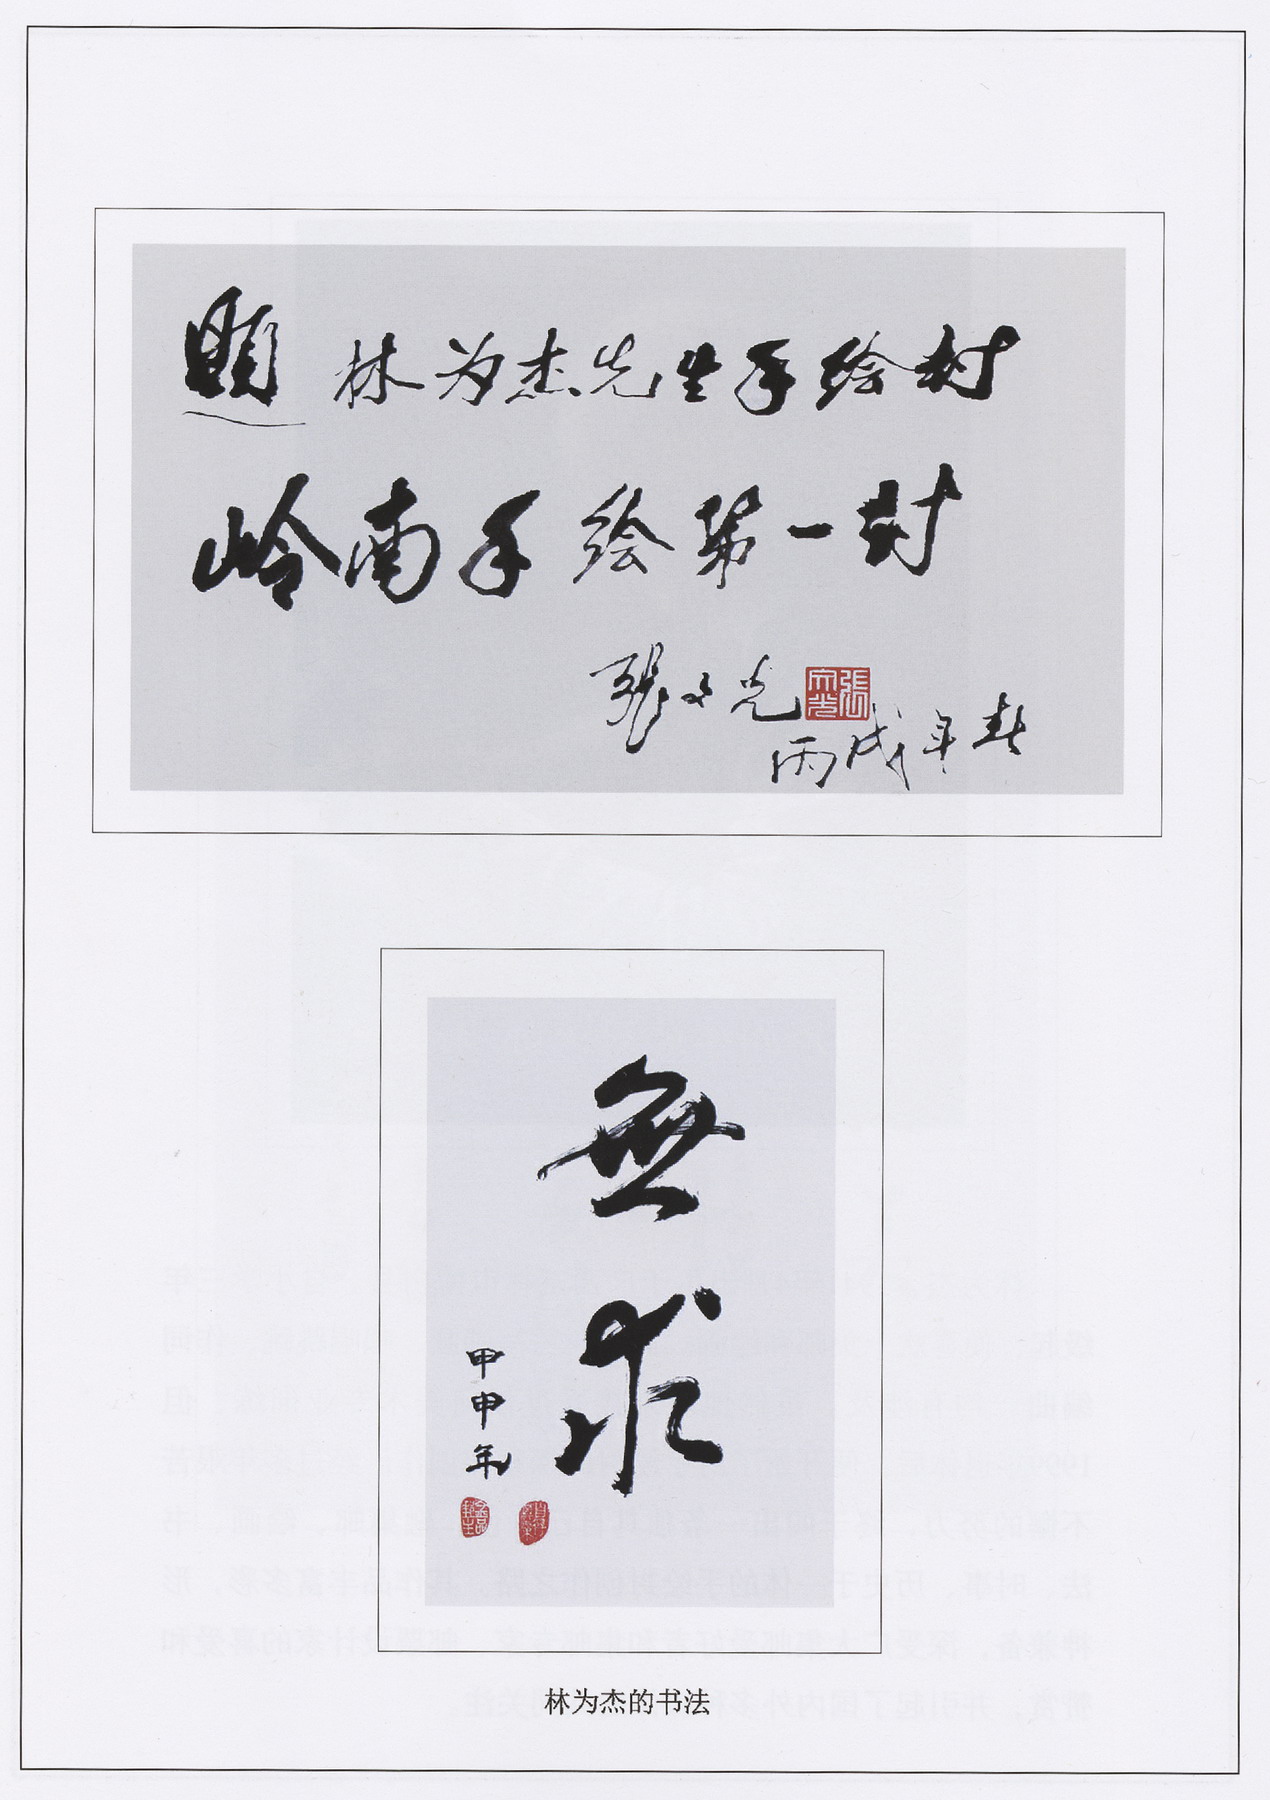 题林为杰先生手绘封
岭南手绘第一封
張文光
張文光
丙戌年春
無求
甲申年
林为杰的书法